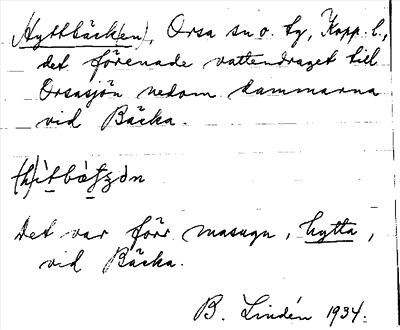 Hyttbäck(en), Orsa sn o. tg, Kopp. l.,
det förenade vattendraget till
Orsasjön nedom dammarna
vid Bäcka.
Det var förr masugn, hytta,
vid Bäcka.
B. Lindén 1934.